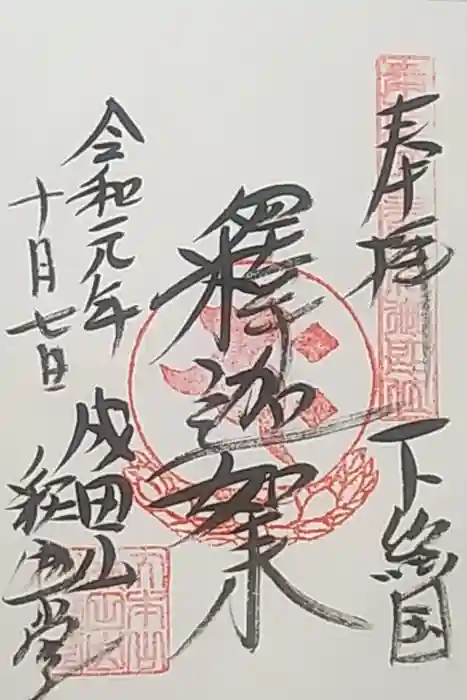 奉拝
下総国
釋迦如来
令和元年
十月七日
成田山
釈迦堂